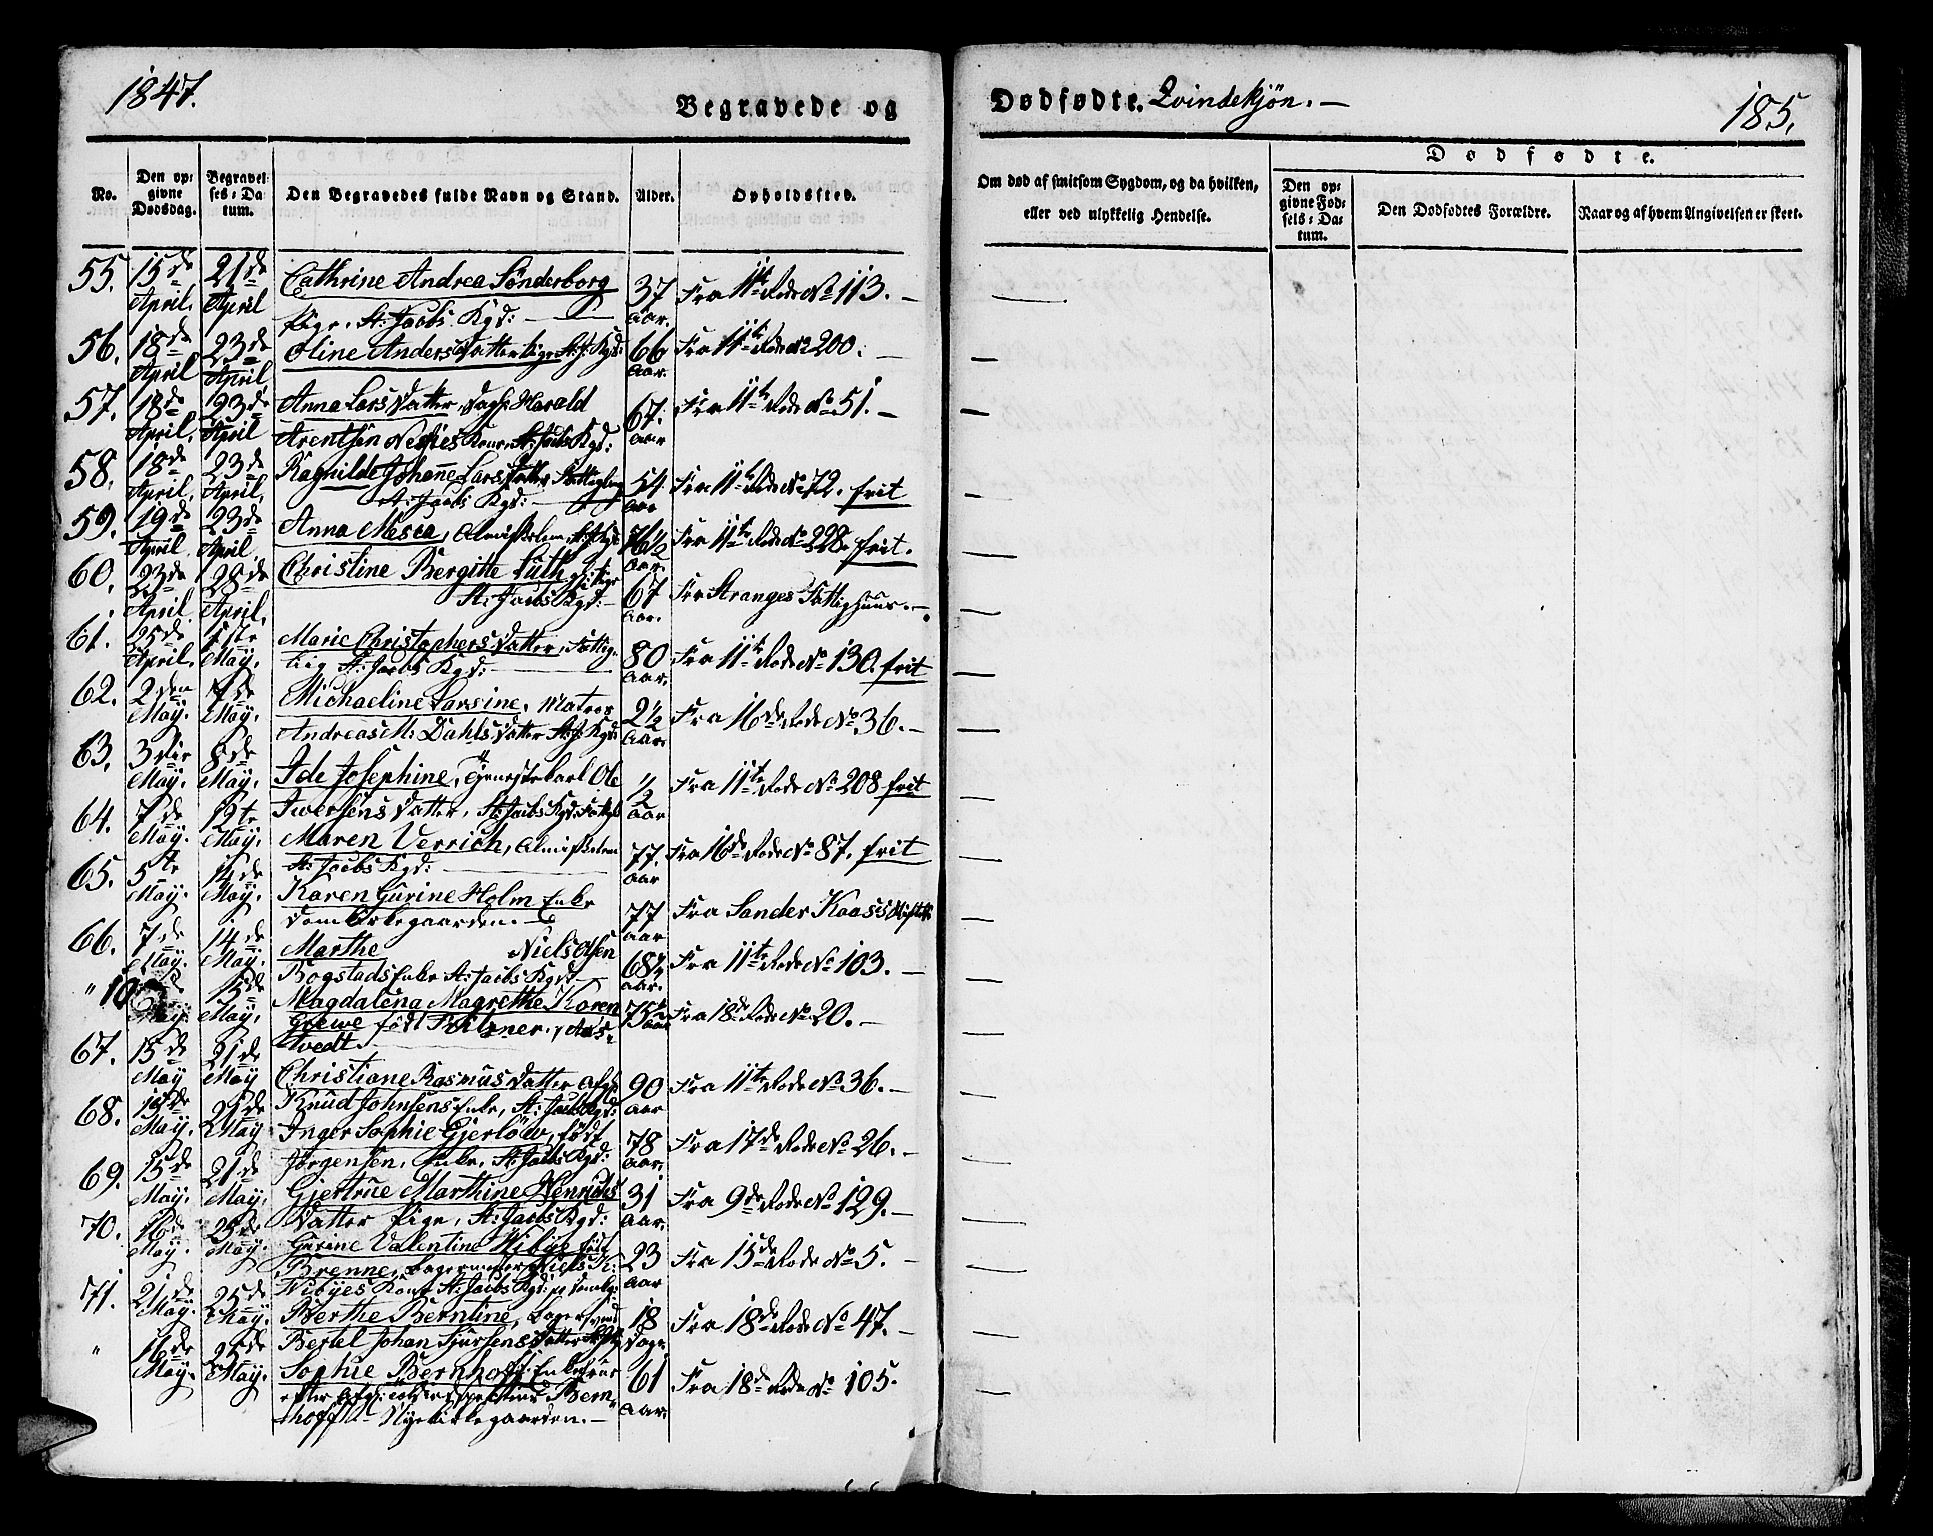 1847.
Begravede og
Dødfødte. Qvindekjøn. —
185.
No.
Den opgivne Dødsdag.
Begravelses-Datum.
Den Begravedes fulde Navn og Stand.
Alder.
Opholdssted.
Om død af smitsom Sygdom, og da hvilken, eller ved ulykkelig Hendelse.
Dødfødte.
Den opgivne Fødsels-Datum.
Den Dødfødtes Forældre.
Naar og af hvem Angivelsen er skeet.
55. 15de April. 21de April Cathrine Andrea Sönderborg 37 Aar. Fra 11te Rode No 113. —
Pige, St: Jacobs Kgd: —
56. 18de April 23de April Oline Anders Datter Pige St: J: Kgd: 66 Aar. Fra 11te Rode No 200. —
57. 18de April. 23de April Anna Lars Datter, Harald 67. Aar Fra 11te Rode No 51. —
Arentsen Kone, St: Jacobs Kgd:
58. 18de April. 23de April. Ragnilde Johanne Lars Datter, Fattiglem 54 Aar Fra 11te Rode No 72. frit
St: Jacobs Kgd: —
59. 19de April 23de April Anna Mesea, Almisselem, St: J: Kgd: 76½ Aar. Fra 11te Rode No 228. frit.
60. 23de April. 28de April. Christine Bergitte Lüth, Pige 67 Aar. Fra Stranges Fattighuus. —
St: Jacobs Kgd: —
61. 25de April. 1ste May. Marie Christophers Datter, Fattig- 80 Aar. Fra 11te Rode No 130. frit
St: Jacobs Kgd: —
62. 2den May. 7de May. Michaeline Larsine, Matros 2½ Aar. Fra 16de Rode No 36. —
Andreas M: Dahls Datter St: J: Kgd:
63. 3die May. 8de May. Ide Josephine, Tjenestekarl Ole ½ Aar Fra 11te Rode No 208 frit
Iwersens Datter, St: Jacobs Kgd:
64. 7de May. 12te May. Maren Verrich, Almisselem 77. Aar Fra 16de Rode No 87. frit
St: Jacobs Kgd: —
65. 5te May. 14de May. Karen Gurine Holm Enke 77 Aar Fra Sander Kaas's Stiftelse
Domkirkegaarden. —
66. 7de May. 14de May. Marthe Niels Olsen 68½ Aar. Fra 11te Rode No 103. —
Rogstads Enke St: Jacobs Kgd: —
" May. 15de May. Magdalena Magrethe Koren Fra 18de Rode No 20. —
Grewe født Bilzner, Aas-
tvedt. —
67. 15de May 21de May Christiane Rasmus Datter afg: 90 Aar Fra 11te Rode No 36. —
Knud Johnsens Enke, St: Jacobs Kgd:
68. 15de May. 21de May Inger Sophie Gjerlöw, født 78 Aar. Fra 17de Rode No 26. —
Jørgensen. Enke. St: Jacobs Kgd:
69. 15de May. 21de May. Gjertrue Marthine Henrichs 31 Aar. Fra 9de Rode No 129. —
Datter Pige, St: Jacobs Kgd:
70. 16de May. 25de May. Gurine Valentine Wibye født 23 Aar Fra 15de Rode No 5. —
Brenne, Bagermester Niels K:
Wibyes Kone St: Jacobs Kgd:
71. 21de May. 25de May. Berthe Berntine, 18 Dage. Fra 18de Rode No 47. —
Bertel Johan Sjursens Datter
" 16de May. 25de May. Sophie Bernhoft, Enkefrue 61 Aar. Fra 18de Rode No 105.
efter afg: Bern-
hofft Nyekirkegaarden. —